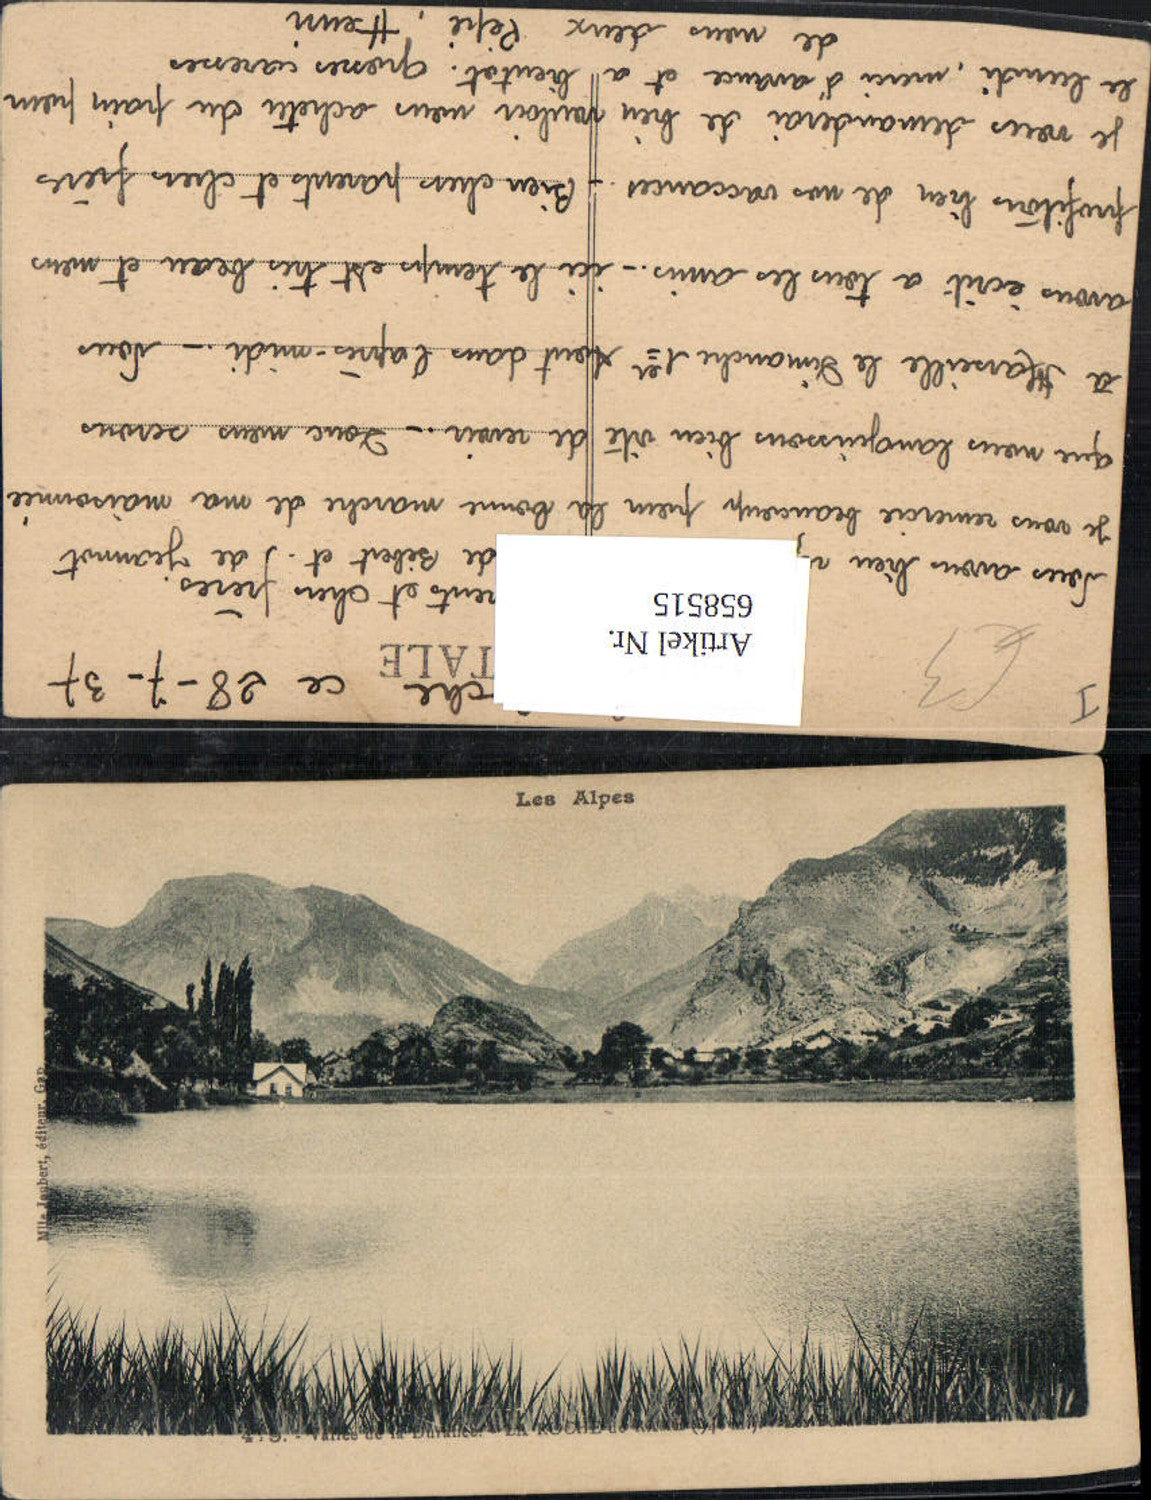 che ce 28-7-37
TALE
rents et chers frères.
Nous avons bien de Bébert et. de Jeannot
je vous remercie beaucoup pour la bonne marche de ma maisonnée
que nous languissons bien vite de revoir -. Donc nous serons
à Marseille le Dimanche 1er Aout dans l'après-midi. - Nous
avons écrit a tous les amis. - ici le temps est très beau et nous
profitons bien de nos vaccances. - Bien chers parents et chers frères
je vous demanderai de bien vouloir nous acheter du pain pour
le lundi, merci d'avance et a bientot. grosses caresses
de nous deux Pépé, Henri
Artikel Nr.
658515
I
Les Alpes
Mlle Joubert, éditeur, Gap
Vallée de la Durance. - LA ROCHE de